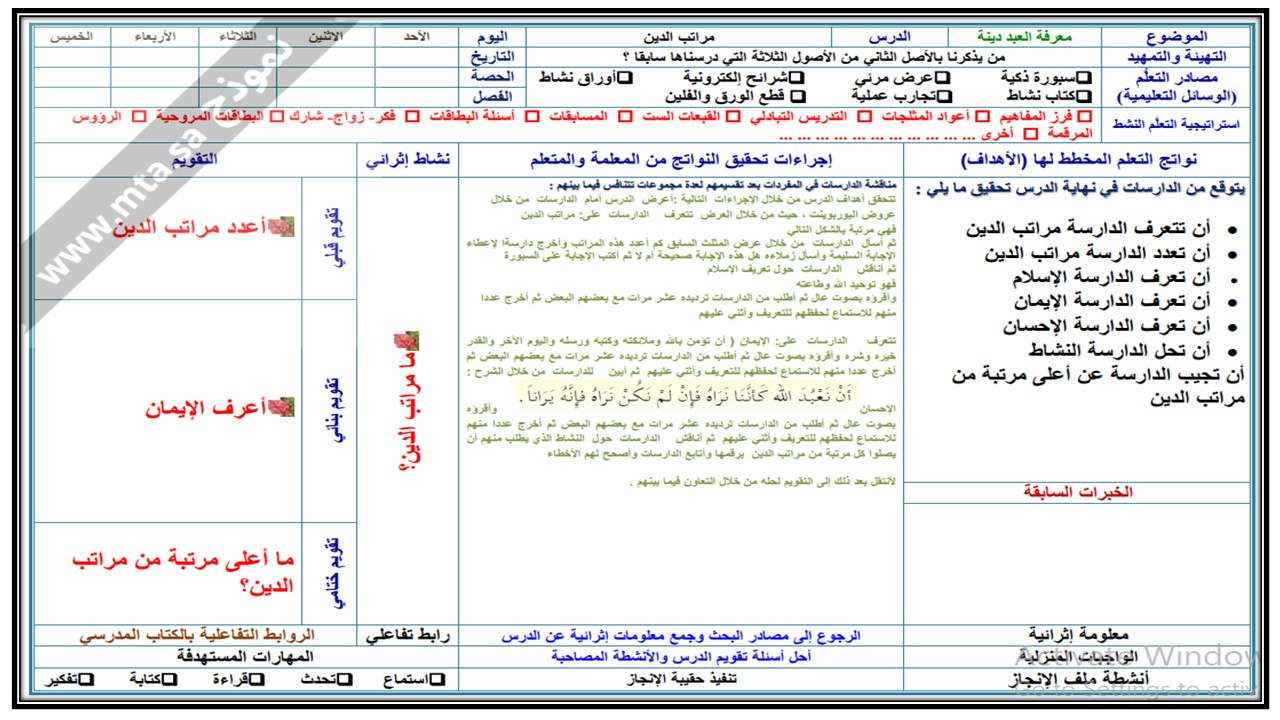 الموضوع معرفة العبد دينة الدرس مراتب الدين اليوم الأحد الاثنين الثلاثاء الأربعاء الخميس
التهيئة والتمهيد من يذكرنا بالأصل الثاني من الأصول الثلاثة التي درسناها سابقا ؟ التاريخ
مصادر التعلّم
(الوسائل التعليمية)
سبورة ذكية عرض مرئي شرائح إلكترونية أوراق نشاط
كتاب نشاط تجارب عملية قطع الورق والفلين
الحصة
الفصل
استراتيجية التعلّم النشط
فرز المفاهيم أعواد المثلجات التدريس التبادلي القبعات الست المسابقات أسئلة البطاقات فكر- زواج- شارك البطاقات المروحية الرؤوس
المرقمة أخرى ... ... ... ... ... ... ... ... ... ... ...
نواتج التعلم المخطط لها (الأهداف) إجراءات تحقيق النواتج من المعلمة والمتعلم نشاط إثرائي التقويم
يتوقع من الدارسات في نهاية الدرس تحقيق ما يلي :
أن تتعرف الدارسة مراتب الدين
أن تعدد الدارسة مراتب الدين
أن تعرف الدارسة الإسلام
أن تعرف الدارسة الإيمان
أن تعرف الدارسة الإحسان
أن تحل الدارسة النشاط
أن تجيب الدارسة عن أعلى مرتبة من
مراتب الدين
الخبرات السابقة
مناقشة الدارسات في المفردات بعد تقسيمهم لعدة مجموعات تتنافس فيما بينهم :
تتحقق أهداف الدرس من خلال الإجراءات التالية :أعرض الدرس أمام الدارسات من خلال
عروض البوربوينت ، حيث من خلال العرض تتعرف الدارسات على: مراتب الدين
فهي مرتبة بالشكل التالي
ثم أسأل الدارسات من خلال عرض المثلث السابق كم أعدد هذه المراتب وأخرج دارسة! لإعطاء
الإجابة السليمة وأسأل زملاءه هل هذه الإجابة صحيحة أم لا ثم أكتب الإجابة على السبورة
ثم أناقش الدارسات حول تعريف الإسلام
فهو توحيد الله وطاعته
وأقرؤه بصوت عال ثم أطلب من الدارسات ترديده عشر مرات مع بعضهم البعض ثم أخرج عددا
منهم للاستماع لحفظهم للتعريف وأثني عليهم
تتعرف الدارسات على: الإيمان ( أن تؤمن بالله وملائكته وكتبه ورسله واليوم الآخر والقدر
خيره وشره وأقرؤه بصوت عال ثم أطلب من الدارسات ترديده عشر مرات مع بعضهم البعض ثم
أخرج عددا منهم للاستماع لحفظهم للتعريف وأثني عليهم ثم أبين للدارسات من خلال الشرح :
أَنْ نَعْبُدَ الله كَأَنَّنَا نَرَاهُ فَإِنْ لَمْ نَكُنْ نَرَاهُ فَإِنَّهُ يَرَانَا.
الإحسان وأقرؤه
بصوت عال ثم أطلب من الدارسات ترديده عشر مرات مع بعضهم البعض ثم أخرج عددا منهم
للاستماع لحفظهم للتعريف وأثني عليهم ثم أناقش الدارسات حول النشاط الذي يطلب منهم أن
يصلوا كل مرتبة من مراتب الدين برقمها وأتابع الدارسات وأصحح لهم الأخطاء
لأنتقل بعد ذلك إلى التقويم لحله من خلال التعاون فيما بينهم .
ما مراتب الدين؟
تقويم قبلي
أعدد مراتب الدين
تقويم بنائي
أعرف الإيمان
تقويم ختامي
ما أعلى مرتبة من مراتب
الدين؟
معلومة إثرائية الرجوع إلى مصادر البحث وجمع معلومات إثرائية عن الدرس رابط تفاعلي الروابط التفاعلية بالكتاب المدرسي
الواجبات المنزلية أحل أسئلة تقويم الدرس والأنشطة المصاحبة المهارات المستهدفة
أنشطة ملف الإنجاز تنفيذ حقيبة الإنجاز استماع تحدث قراءة كتابة تفكير
نموذج www.mta.sa
Activate Window
Go to Settings to activ